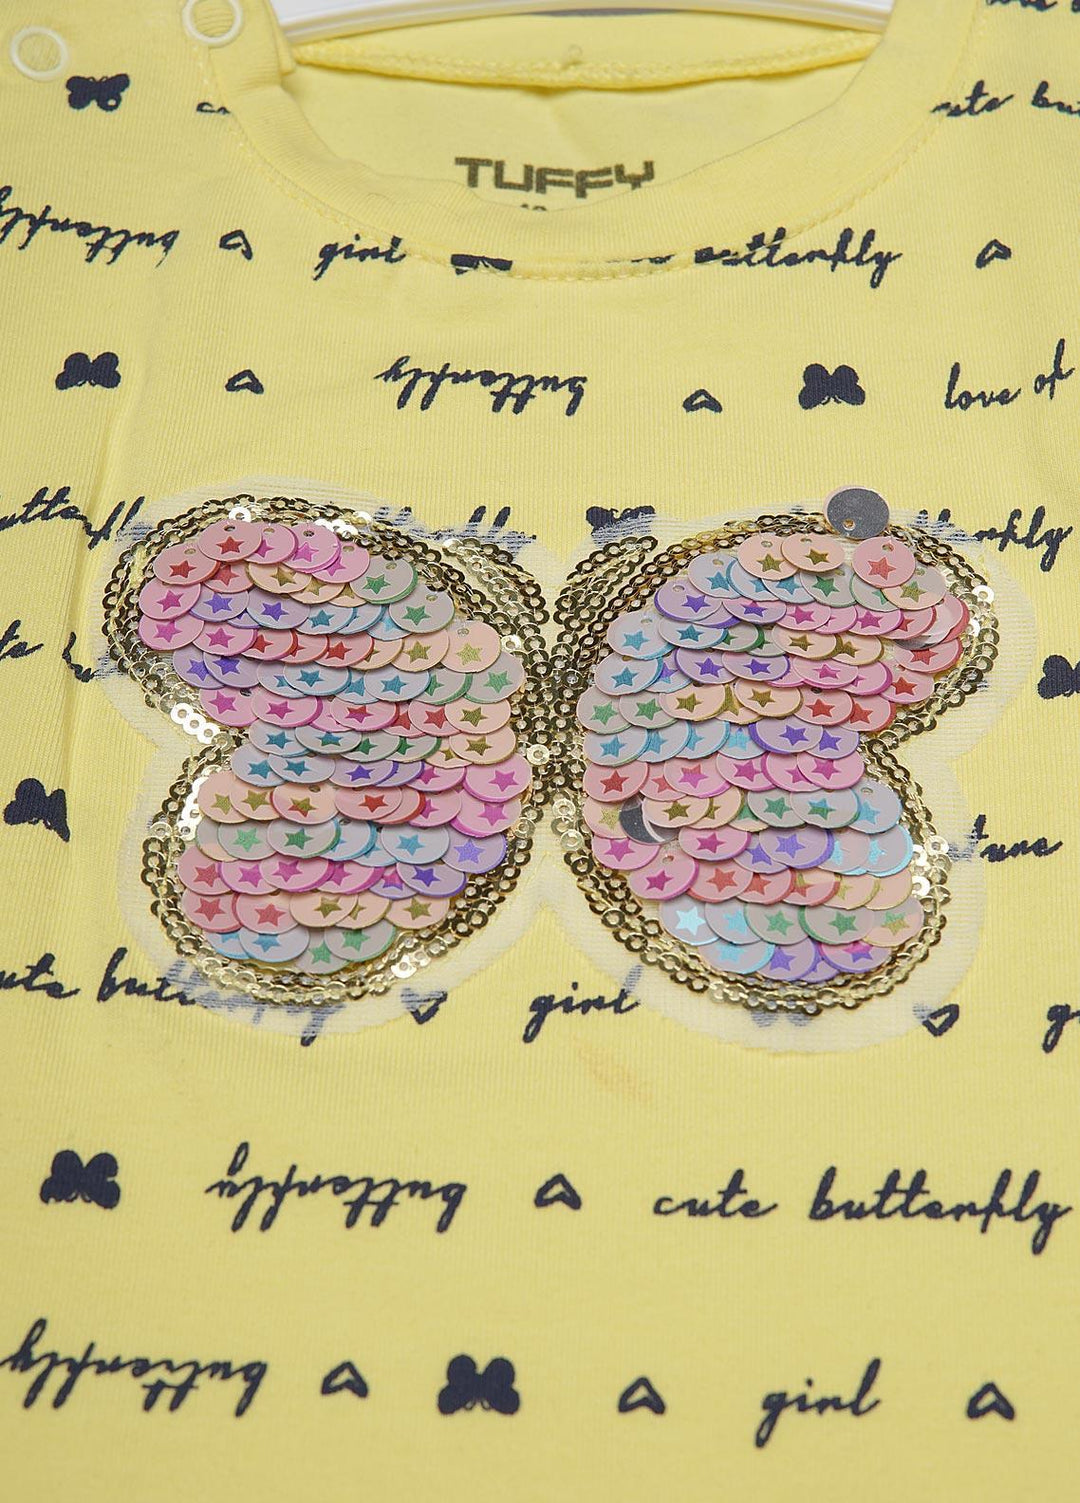 TUFFY
cute
butterfly girl butterfly
butterfly love of
butterfly butterfly
cute
cute butterfly girl
butterfly cute butterfly
butterfly girl